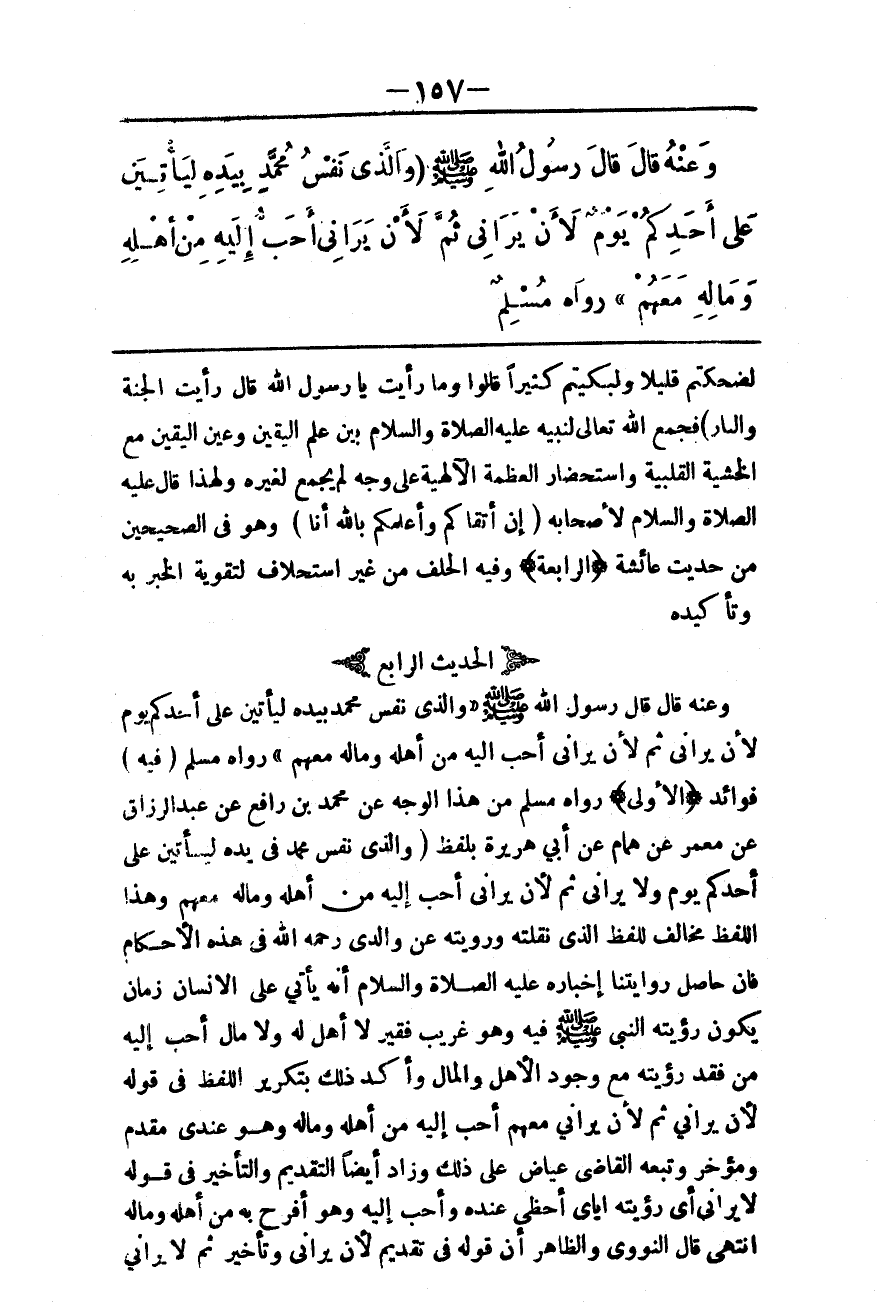 —١٥٧—
وَعَنْهُ قَالَ قَالَ رَسُولُ اللهِ ﷺ (وَالَّذِى نَفْسُ مُحَمَّدٍ بِيَدِهِ لَيَأْتِيَنَّ
عَلَى أَحَدِكُمْ يَوْمٌ لَأَنْ يَرَانِى ثُمَّ لَأَنْ يَرَانِى أَحَبُّ إِلَيْهِ مِنْ أَهْلِهِ
وَمَالِهِ مَعَهُمْ » رواه مُسْلِمٌ
لضحكتم قليلا ولبكيتم كثيراً قالوا وما رأيت يا رسول الله قال رأيت الجنة
والنار) فجمع الله تعالى لنبيه عليه الصلاة والسلام بين علم اليقين وعين اليقين مع
الخشية القلبية واستحضار العظمة الآلهية على وجه لم يجمع لغيره ولهذا قال عليه
الصلاة والسلام لأصحابه ( إن أتقاكم وأعلمكم بالله أنا ) وهو فى الصحيحين
من حديث عائشة ﴿الرابعة﴾ وفيه الحلف من غير استحلاف لتقوية الخبر به
وتأكيده
الحديث الرابع
وعنه قال قال رسول الله ﷺ «والذى نفس محمد بيده ليأتين على أحدكم يوم
لأن يرانى ثم لأن يرانى أحب اليه من أهله وماله معهم » رواه مسلم ( فيه )
فوائد ﴿الأولى﴾ رواه مسلم من هذا الوجه عن محمد بن رافع عن عبدالرزاق
عن معمر عن همام عن أبي هريرة بلفظ ( والذى نفس محمد فى يده ليأتين على
أحدكم يوم ولا يرانى ثم لأن يرانى أحب إليه من أهله وماله معهم وهذا
اللفظ مخالف للفظ الذى نقلته ورويته عن والدى رحمه الله فى هذه الأحكام
فان حاصل روايتنا إخباره عليه الصلاة والسلام أنه يأتي على الانسان زمان
يكون رؤيته النبي ﷺ فيه وهو غريب فقير لا أهل له ولا مال أحب إليه
من فقد رؤيته مع وجود الأهل والمال وأكد ذلك بتكرير اللفظ فى قوله
لأن يراني ثم لأن يراني معهم أحب إليه من أهله وماله وهو عندى مقدم
ومؤخر وتبعه القاضى عياض على ذلك وزاد أيضاً التقديم والتأخير فى قوله
لا يرانى أى رؤيته اياى أحظي عنده وأحب إليه وهو أفرح به من أهله وماله
انتهى قال النووى والظاهر أن قوله فى تقديم لأن يرانى وتأخير ثم لا يراني